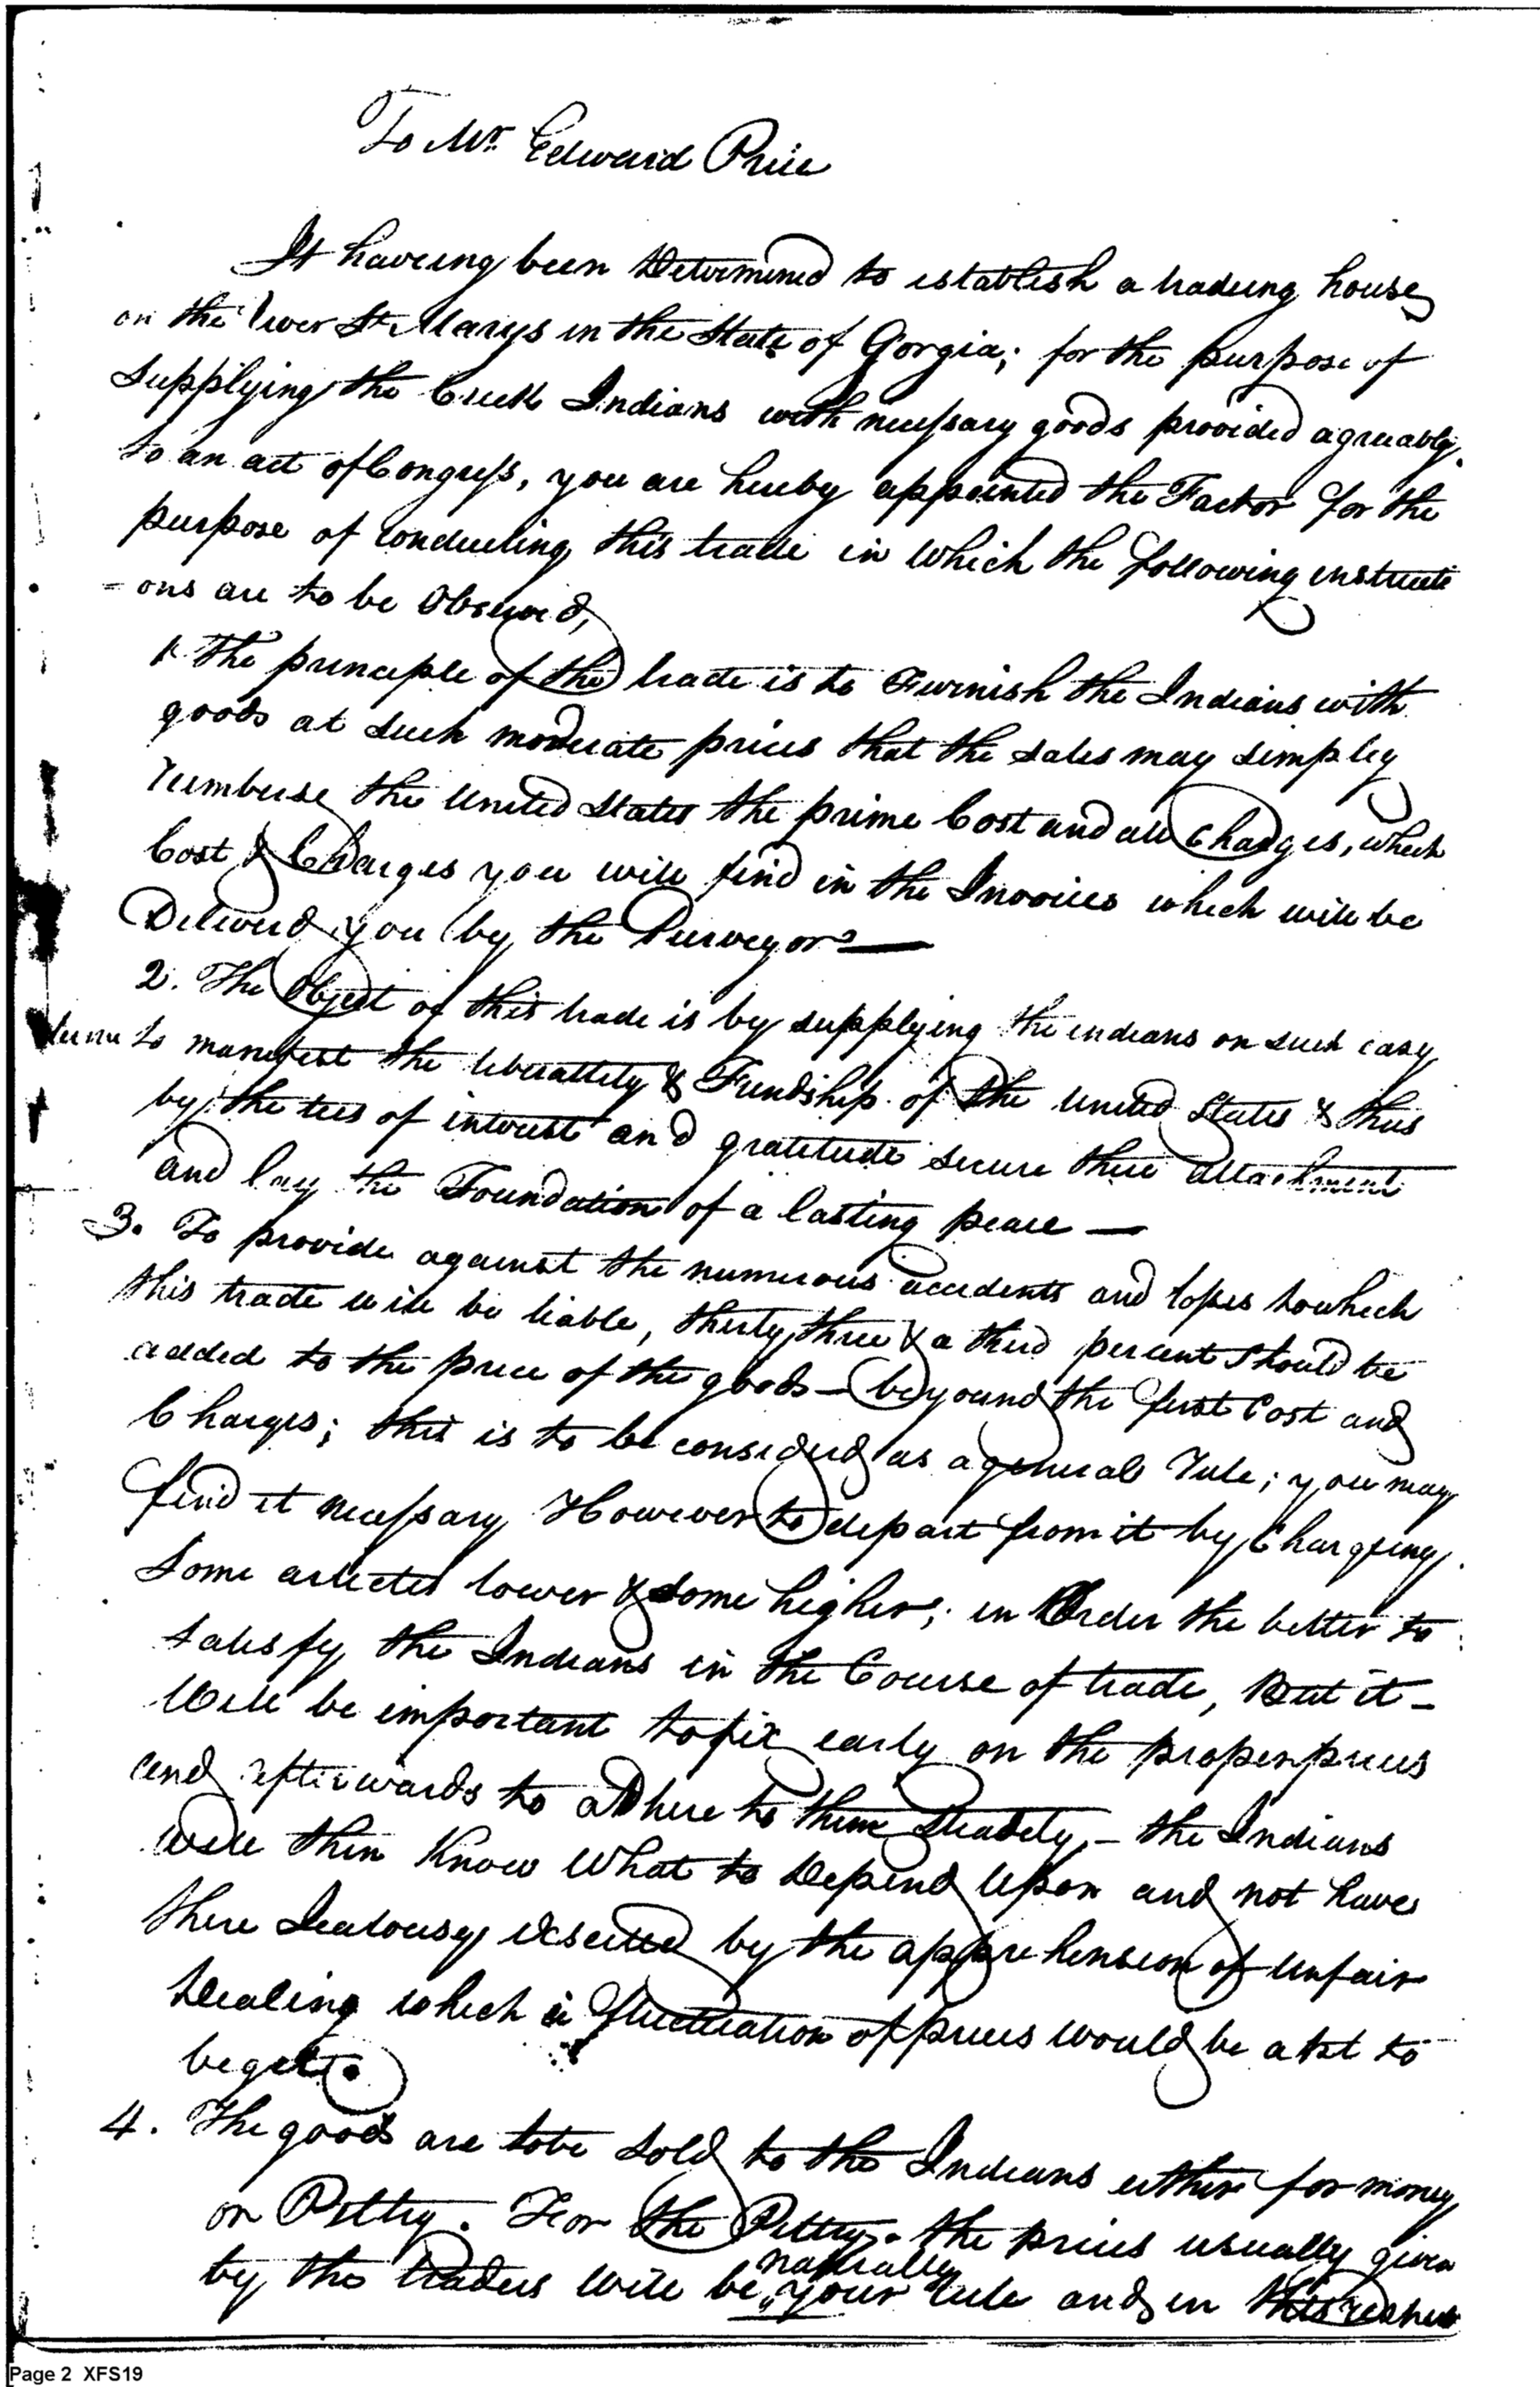 To Mr. Edward Price
It haveing been Determined to establish a tradeing house
on the river St. Marys in the State of Gorgia; for the purpose of
Supplying the Creek Indians with necessary goods provided agreeably
to an act of Congress, you are hereby appointed the Factor for the
purpose of conducting this trade in which the following instructi
-ons are to be Observed,
1. The principle of the trade is to Furnish the Indians with
goods at such moderate prices that the sales may simpley
reimburse the United States the prime Cost and all Charges, which
Cost & Charges you will find in the Invoices which will be
Delivered you by the Purveyor—
2. The Object of this trade is by supplying the indians on such easy
terms to manifest the liberallity & Friendship of the United States & thus
by the ties of interest and gratitude secure there attachment
and lay the Foundation of a lasting peace —
3. To provide against the numerous accidents and losses to which
this trade will be liable, thirty three & a third percent should be
added to the price of the goods — beyound the first Cost and
Charges; this is to be considered as a general rule; you may
find it necessary However to depart from it by Chargeing
Some articles lower & some higher; in Order the better to
satisfy the Indians in the Course of trade, But it —
Will be important to fix early on the proper prices
and afterwards to adhere to them steadily, — the Indians
will then Know What to Depend Upon and not have
there Jealousy Excited by the apprehension of unfair
Dealing which a fluctuation of prices would be apt to
beget.
4. The goods are to be sold to the Indians either for money
or Peltry. For the Peltry. the prices usually given
naturally
by the traders will be your rule and in this respect
Page 2 XFS19